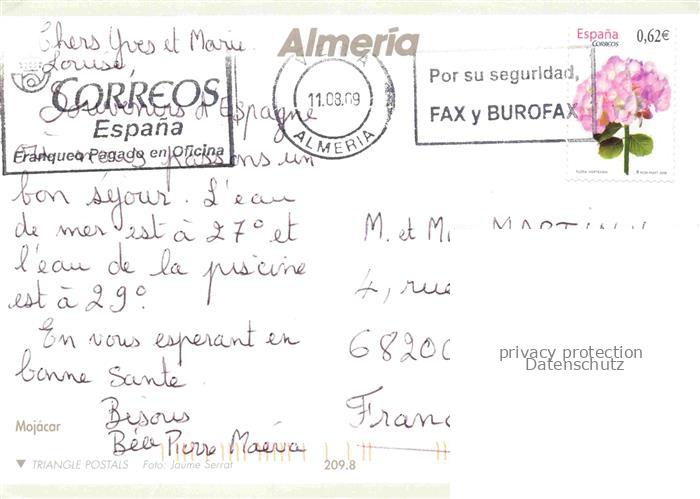 Chers Yves et Marie
Louise,
Almería
CORREOS
España
Franqueo Pagado en Oficina
11.08.09
ALMERIA
Por su seguridad,
FAX y BUROFAX
España
CORREOS
0,62€
Souvenirs d'Espagne
passons un
bon séjour. L'eau
de mer est à 27° et
l'eau de la piscine
est à 29°.
En vous esperant en
bonne santé.
Bisous
Pierre Maeva
M. et M
4, rue
68200
Franc
privacy protection
Datenschutz
Mojácar
▼ TRIANGLE POSTALS Foto: Jaume Serrat 209.8